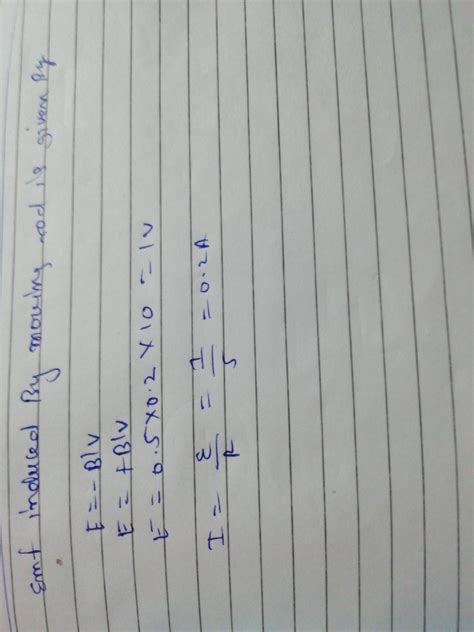 Emf induced By moving rod is given By
E = -Blv
E = +Blv
E = 0.5 x 0.2 x 10 = 1v
I = ε/R = 1/5 = 0.2A